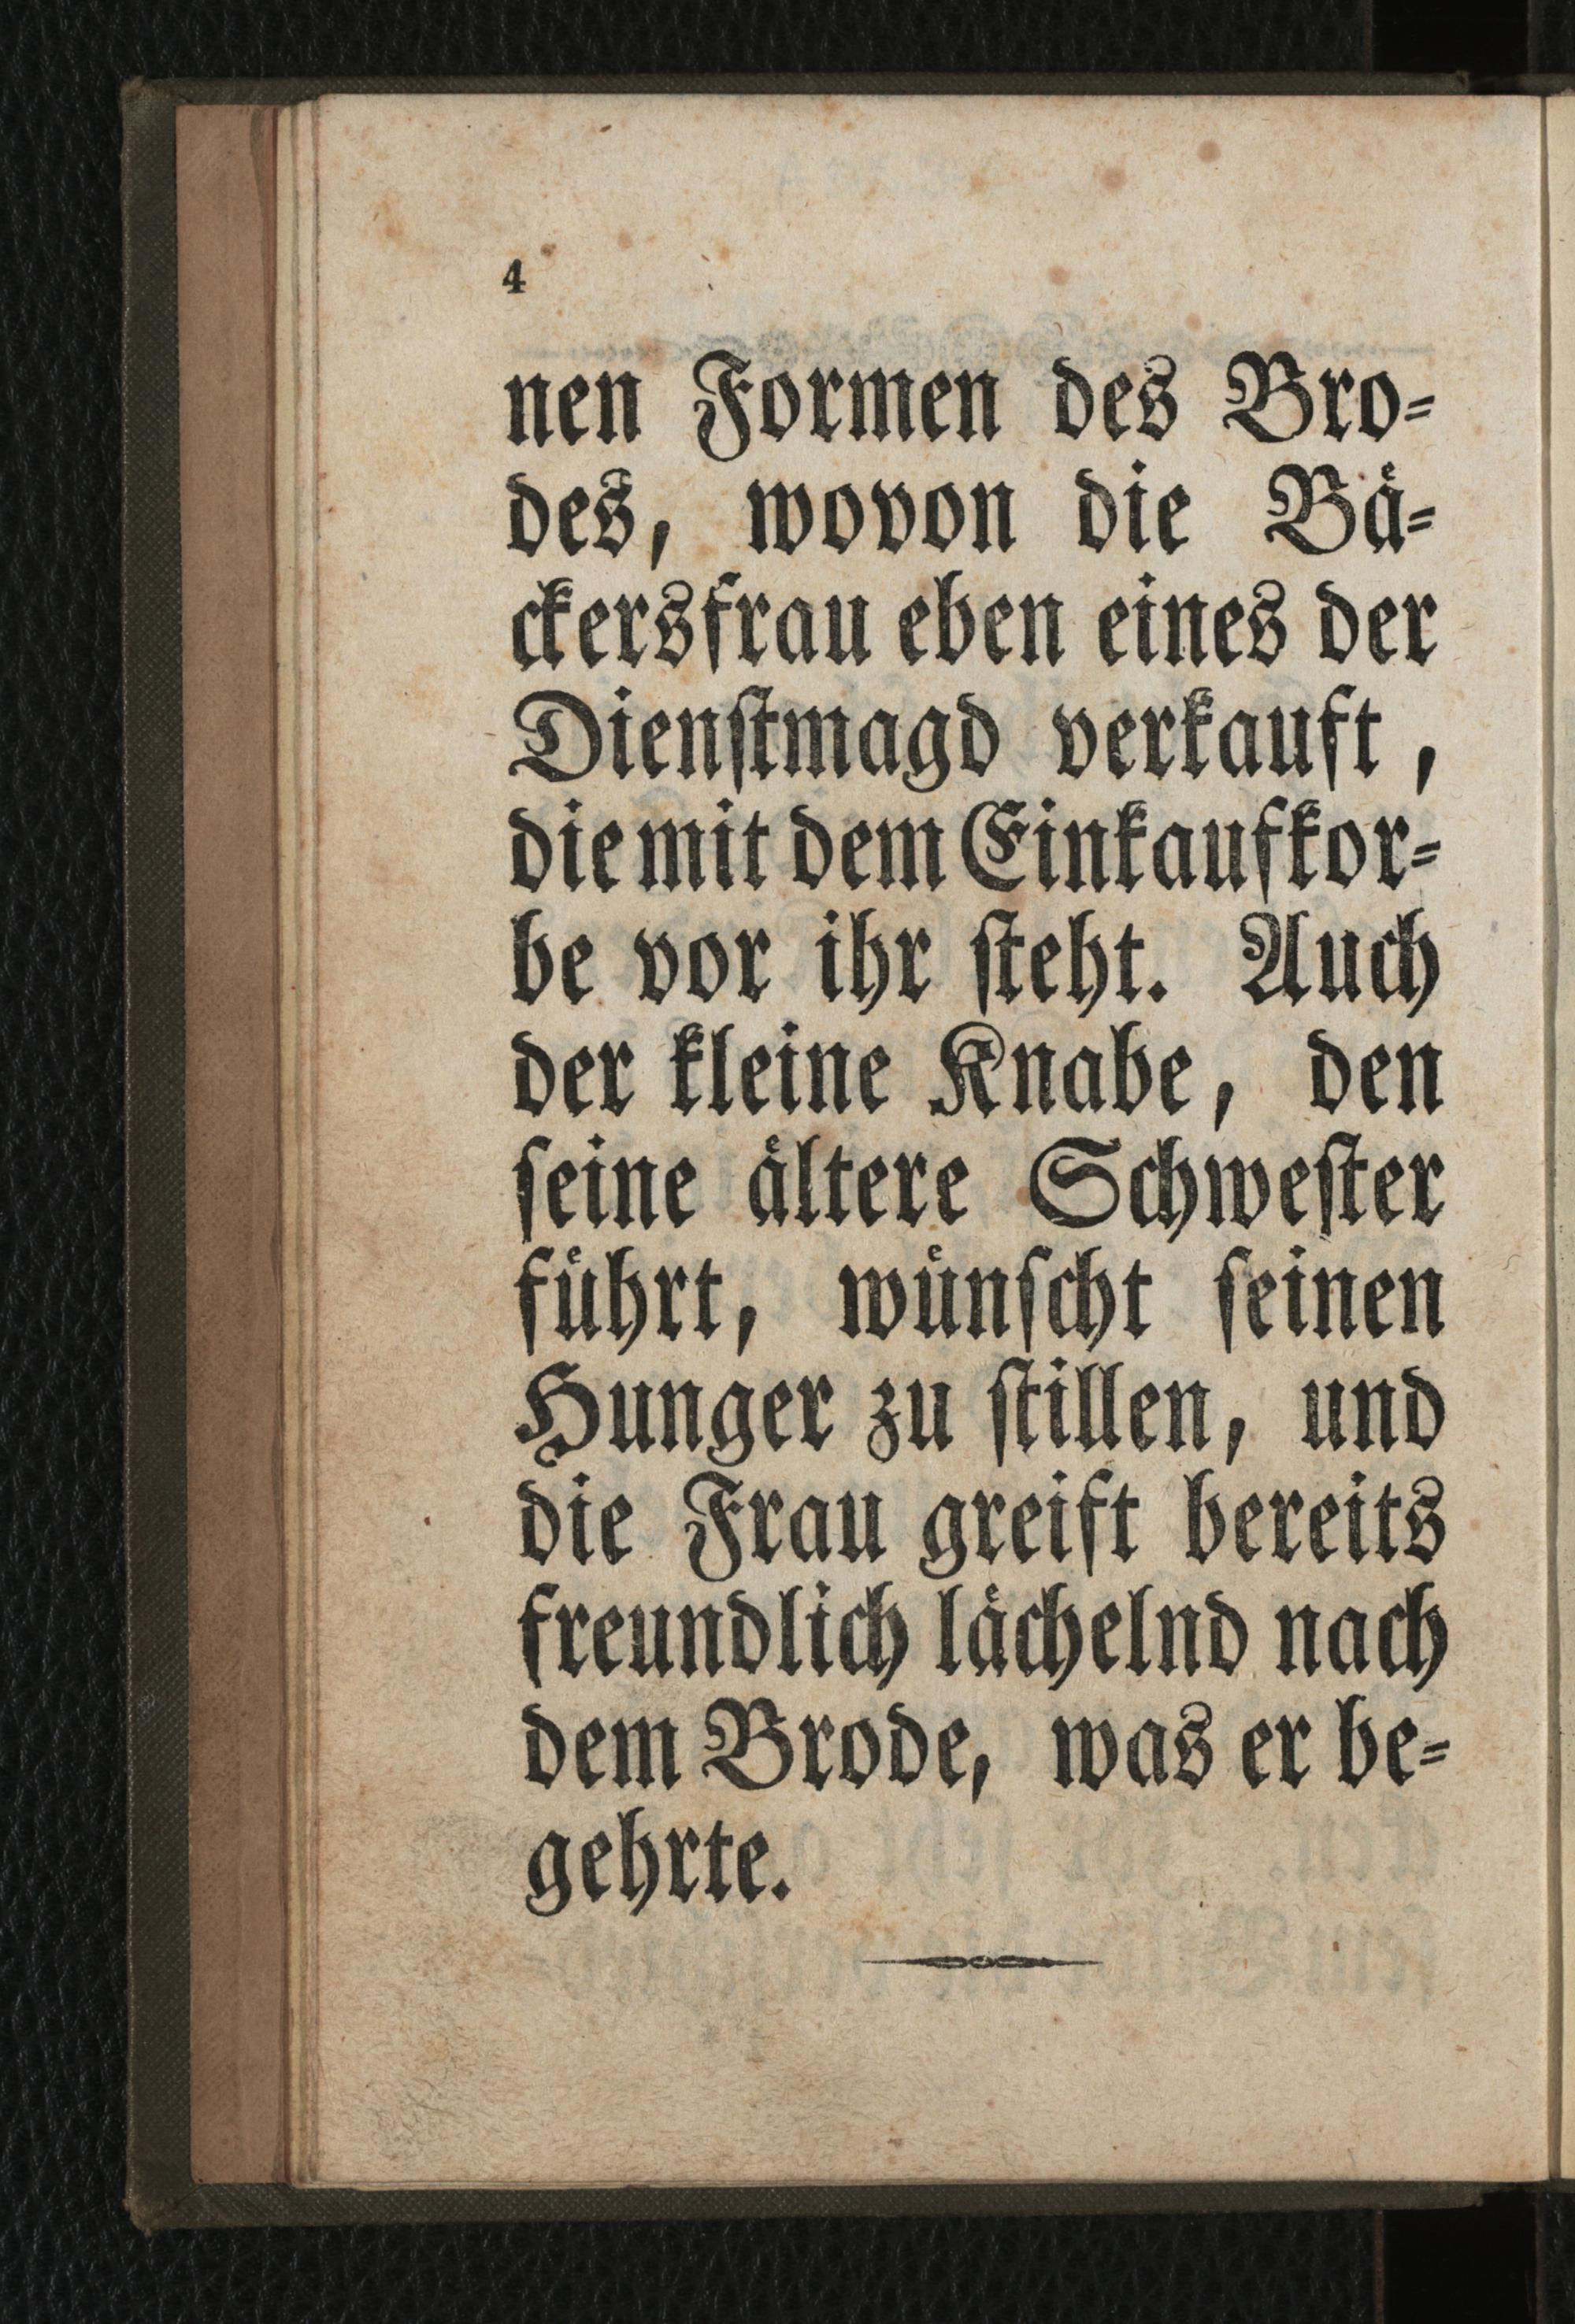 4
nen Formen des Bro-
des, wovon die Bä-
ckersfrau eben eines der
Dienſtmagd verkauft,
die mit dem Einkaufkor-
be vor ihr ſteht. Auch
der kleine Knabe, den
ſeine ältere Schweſter
führt, wünſcht ſeinen
Hunger zu ſtillen, und
die Frau greift bereits
freundlich lächelnd nach
dem Brode, was er be-
gehrte.